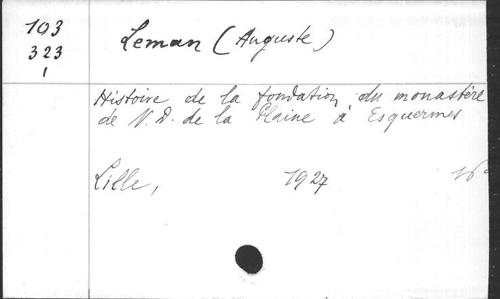 103
323
1
Leman (Auguste)
Histoire de la fondation du monastère
de N. D. de la Plaine à Esquermes
Lille, 1927 16°